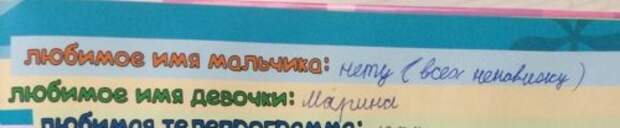 любимое имя мальчика: нету (всех ненавижу)
любимое имя девочки: Марина
любимая телепрограмма: